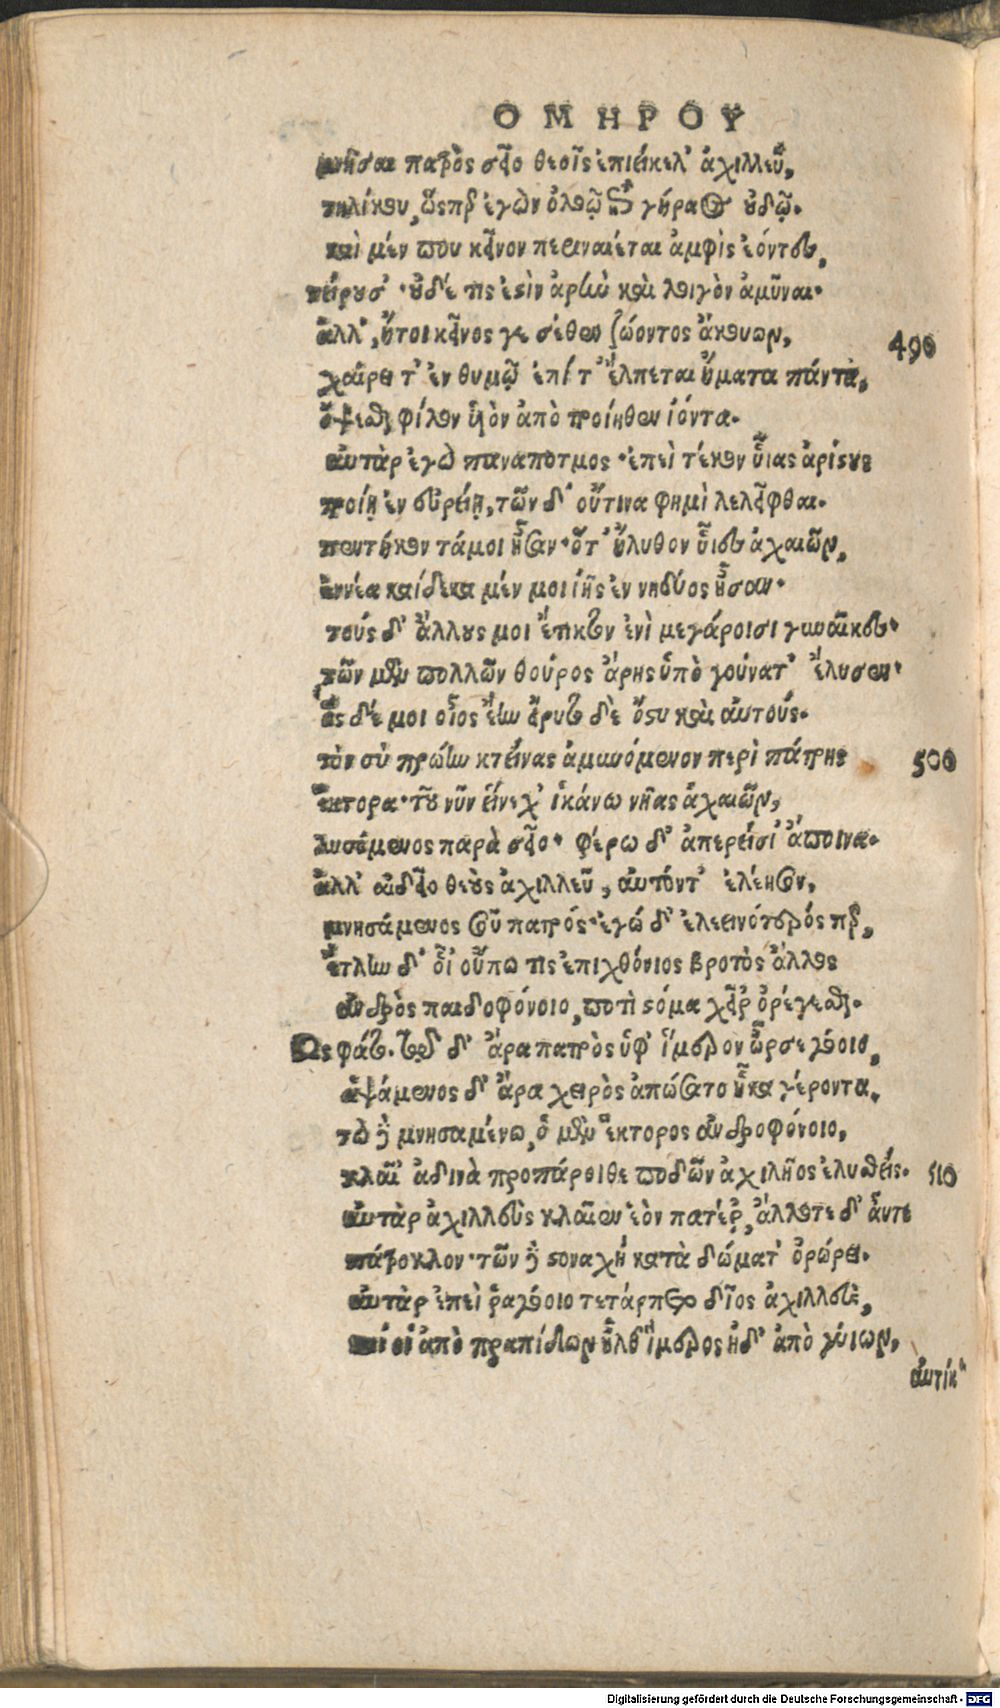 ΟΜΗΡΟΥ
μνῆσαι πατρὸς σεῖο θεοῖς ἐπιείκελ' ἀχιλλεῦ,
τηλίκου, ὥσπερ ἐγὼν ὀλοῷ ἐπὶ γήραος οὐδῷ.
καὶ μέν που κεῖνον περιναιέται ἀμφὶς ἐόντες,
τείρουσ'· οὐδέ τις ἐστὶν ἀρὴν καὶ λοιγὸν ἀμῦναι.
ἀλλ', ἤτοι κεῖνος γε σέθεν ζώοντος ἀκούων,
490
χαίρει τ' ἐν θυμῷ ἐπί τ' ἔλπεται ἤματα πάντα,
ὄψεσθαι φίλον υἱὸν ἀπὸ τροίηθεν ἰόντα.
αὐτὰρ ἐγὼ παναποτμος· ἐπεὶ τέκον υἷας ἀρίστους
τροίῃ ἐν εὐρείῃ, τῶν δ' οὔτινα φημὶ λελεῖφθαι.
πεντήκον τάμοι ἦσαν· ὅτ' ἤλυθον υἷες ἀχαιῶν,
ἐννέα καίδεκα μέν μοι ἰῆς ἐν νηδύος ἦσαν.
τοὺς δ' ἄλλους μοι ἔτικτον ἐνὶ μεγάροισι γυναῖκες·
τῶν μὲν πολλῶν θοῦρος ἄρης ὑπὸ γούνατ' ἔλυσεν·
ὃς δέ μοι οἶος ἔην εἴρυτο δὲ ἄστυ καὶ αὐτούς.
τὸν σὺ πρώην κτεῖνας ἀμυνόμενον περὶ πάτρης
500
ἕκτορα· τοῦ νῦν εἵνεχ' ἱκάνω νῆας ἀχαιῶν,
λυσόμενος παρὰ σεῖο· φέρω δ' ἀπερείσι' ἄποινα.
ἀλλ' αἰδεῖο θεοὺς ἀχιλλεῦ, αὐτόντ' ἐλέησον,
μνησάμενος σοῦ πατρός· ἐγώ δ' ἐλεεινότερός περ,
ἔτλην δ' οἷ' οὔπω τις ἐπιχθόνιος βροτὸς ἄλλος
ἀνδρὸς παιδοφόνοιο, ποτὶ στόμα χεῖρ' ὀρέγεσθαι.
Ως φάτο. τῷ δ' ἄρα πατρὸς ὑφ' ἵμερον ὦρσε γόοιο,
ἁψάμενος δ' ἄρα χειρὸς ἀπώσατο ἦκα γέροντα.
τὼ δὲ μνησαμένω, ὁ μὲν ἕκτορος ἀνδροφόνοιο,
κλαῖ' ἀδινὰ προπάροιθε ποδῶν ἀχιλῆος ἐλυσθείς.
510
αὐτὰρ ἀχιλλεὺς κλαῖεν ἑὸν πατέρ', ἄλλοτε δ' αὖτε
πάτροκλον· τῶν δὲ στοναχὴ κατὰ δώματ' ὀρώρει.
αὐτὰρ ἐπεὶ ῥα γόοιο τετάρπετο δῖος ἀχιλλεύς,
καί οἱ ἀπὸ πραπίδων ἦλθ' ἵμερος ἠδ' ἀπὸ γυίων,
αὐτίκ'
Digitalisierung gefördert durch die Deutsche Forschungsgemeinschaft - DFG